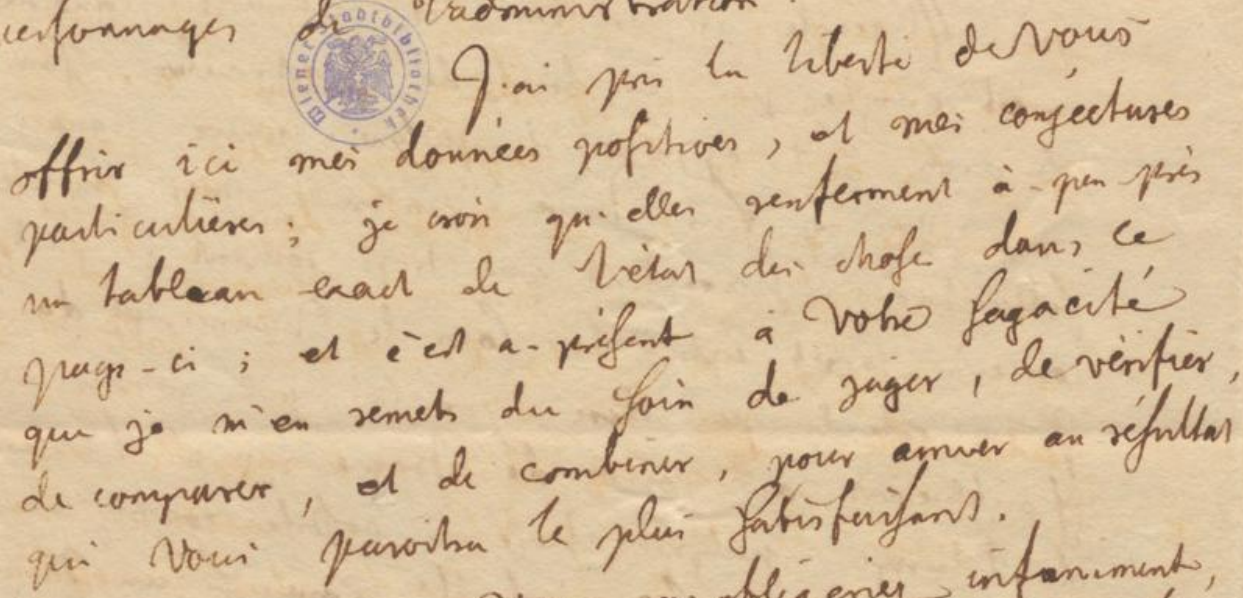 personnages de l'administration.
J'ai pris la liberté de Vous
offrir ici mes données positives, et mes conjectures
particulières; je crois qu'elles renferment à-peu près
un tableau exact de l'état des chose dans ce
pays-ci; et c'est a-présent à Votre sagacité
que je m'en remets du soin de juger, de vérifier,
de comparer, et de combiner, pour arriver au résultat
qui Vous paroitra le plus satisfaisant.
obligeriez infiniment,
Wiener Stadtbibliothek